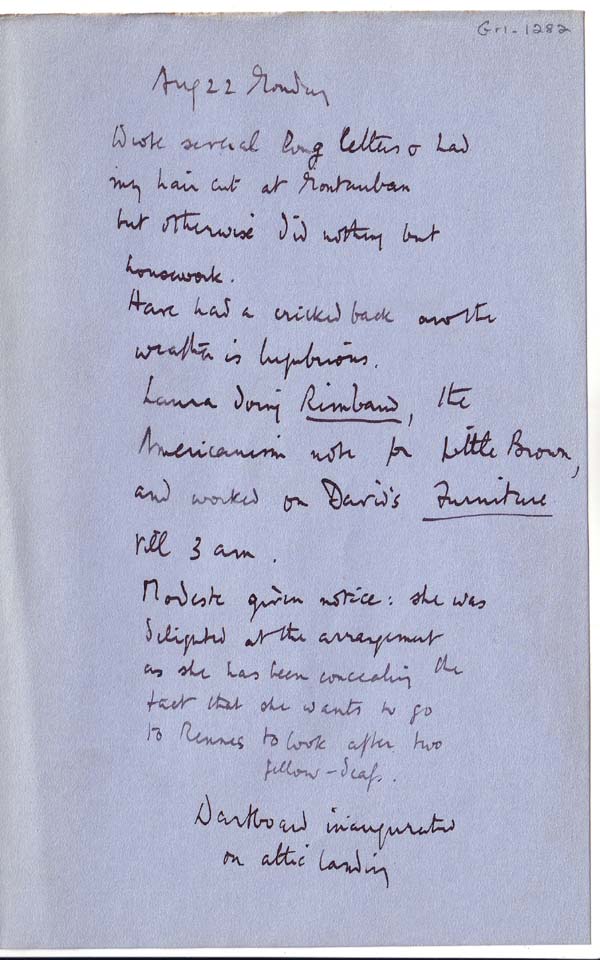 Gr1-1282
Aug 22 Monday
Wrote several long letters & had
my hair cut at Montauban
but otherwise did nothing but
housework.
Have had a cricked back and the
weather is lugubrious.
Laura doing Rimbaud, the
Americanism note for Little Brown,
and worked on David's Furniture
till 3 am.
Modeste given notice: she was
delighted at the arrangement
as she has been concealing the
fact that she wants to go
to Rennes to look after two
fellow-deafs.
Dartboard inaugurated
on attic landing